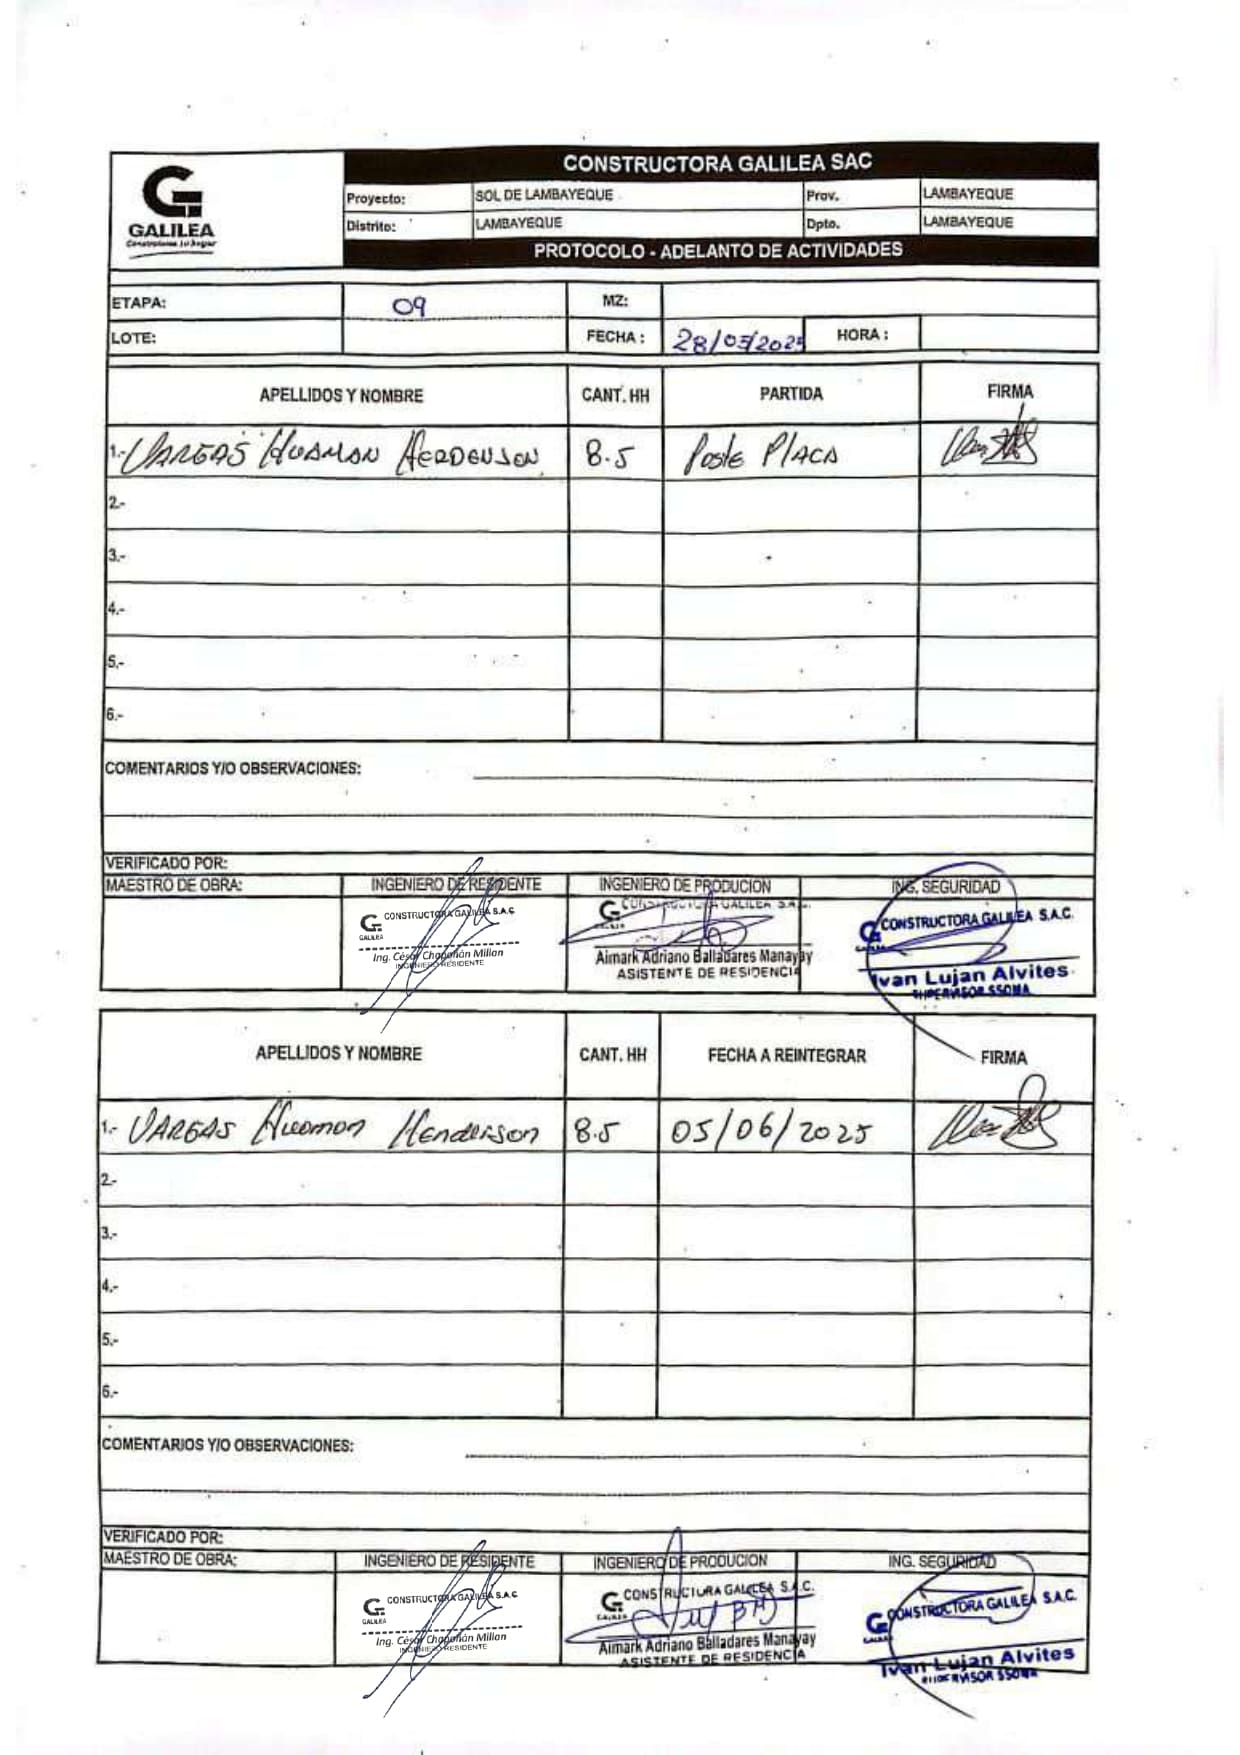 CONSTRUCTORA GALILEA SAC
GALILEA
Construimos tu hogar
Proyecto: SOL DE LAMBAYEQUE Prov. LAMBAYEQUE
Distrito: LAMBAYEQUE Dpto. LAMBAYEQUE
PROTOCOLO - ADELANTO DE ACTIVIDADES
ETAPA: 09 MZ:
LOTE: FECHA : 28/05/2025 HORA :
APELLIDOS Y NOMBRE CANT. HH PARTIDA FIRMA
1.- VARGAS HUAMAN HERDENSON 8.5 Poste PLACA
2.-
3.-
4.-
5.-
6.-
COMENTARIOS Y/O OBSERVACIONES:
VERIFICADO POR:
MAESTRO DE OBRA: INGENIERO DE RESIDENTE INGENIERO DE PRODUCION ING. SEGURIDAD
CONSTRUCTORA GALILEA S.A.C CONSTRUCTORA GALILEA S.A.C. CONSTRUCTORA GALILEA S.A.C.
GALILEA
Ing. César Chapoñán Millan Aimark Adriano Balladares Manayay Ivan Lujan Alvites
INGENIERO RESIDENTE ASISTENTE DE RESIDENCIA SUPERVISOR SSOMA
APELLIDOS Y NOMBRE CANT. HH FECHA A REINTEGRAR FIRMA
1.- VARGAS Huamon Henderson 8.5 05/06/2025
2.-
3.-
4.-
5.-
6.-
COMENTARIOS Y/O OBSERVACIONES:
VERIFICADO POR:
MAESTRO DE OBRA: INGENIERO DE RESIDENTE INGENIERO DE PRODUCION ING. SEGURIDAD
CONSTRUCTORA GALILEA S.A.C CONSTRUCTORA GALILEA S.A.C. CONSTRUCTORA GALILEA S.A.C.
GALILEA
Ing. César Chapoñán Millan Aimark Adriano Balladares Manayay Ivan Lujan Alvites
INGENIERO RESIDENTE ASISTENTE DE RESIDENCIA SUPERVISOR SSOMA